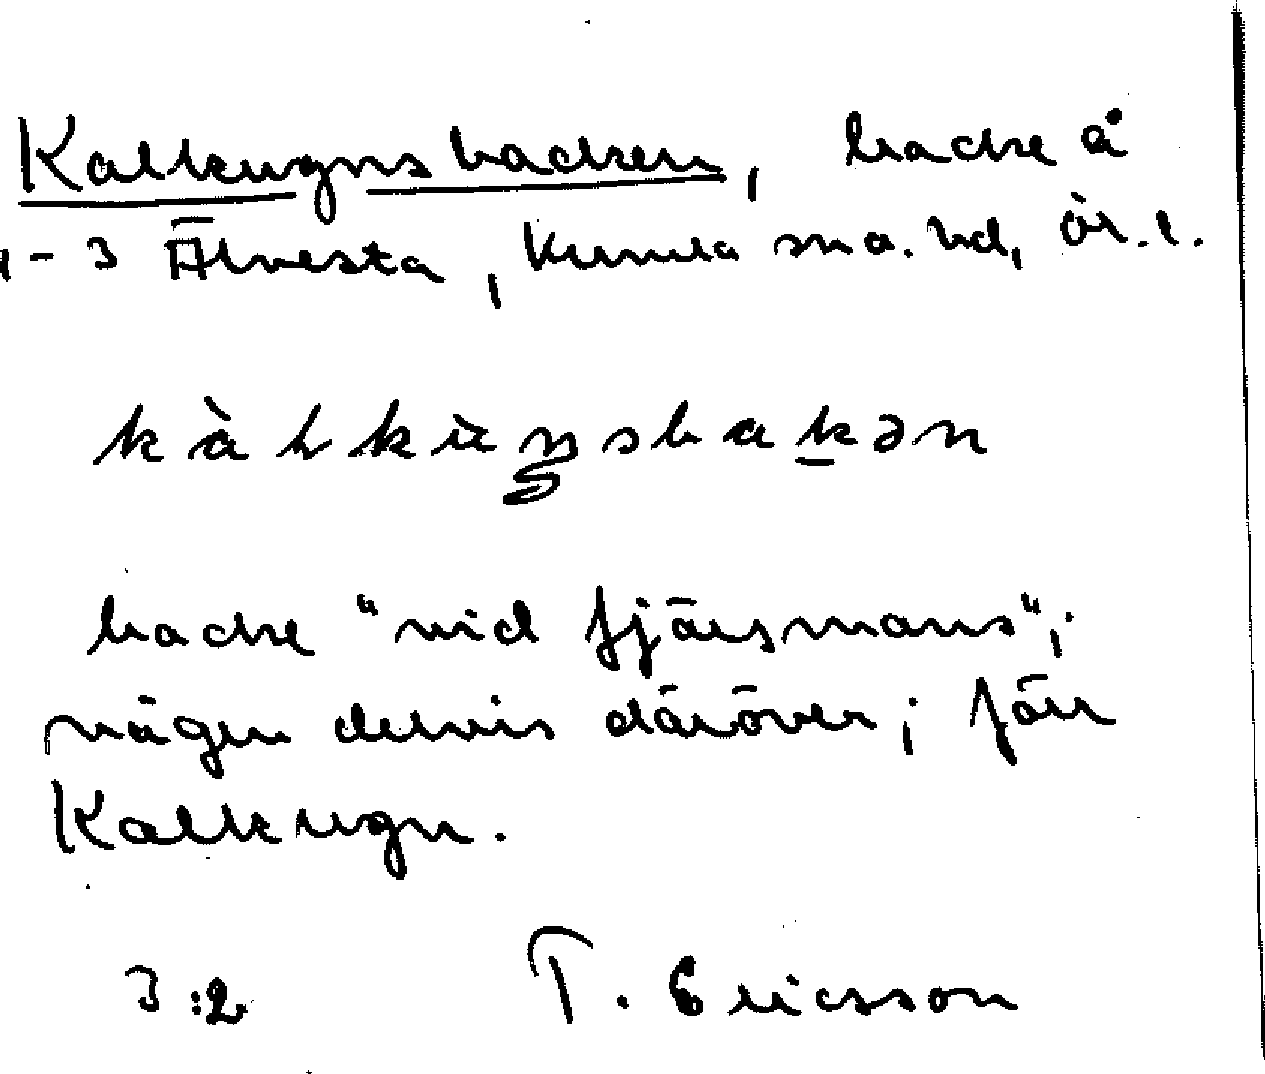 Kalkugnsbacken, backe å
1-3 Älvesta, Kumla sn o. hd, Ör. l.
backe "vid fjärsmans";
vägen delvis däröver; jfr
Kalkugn.
3:2 T. Ericsson